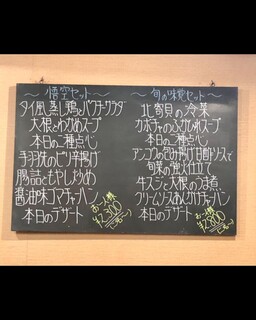 ～悟空セット～
タイ風蒸し鶏とパクチーサラダ
大根とわかめスープ
本日の二種点心
手羽先のピリ辛揚げ
腸詰ともやし炒め
醤油味ゴマチャーハン
本日のデザート
お一人様
¥2,300
～旬の味覚セット～
北寄貝の冷菜
カボチャのふかひれスープ
本日の二種点心
アンコウの包み揚げ甘酢ソースで
旬菜の強火仕立て
牛スジと大根のうま煮
クリームソースあんかけチャーハン
本日のデザート
お一人様
¥2,800